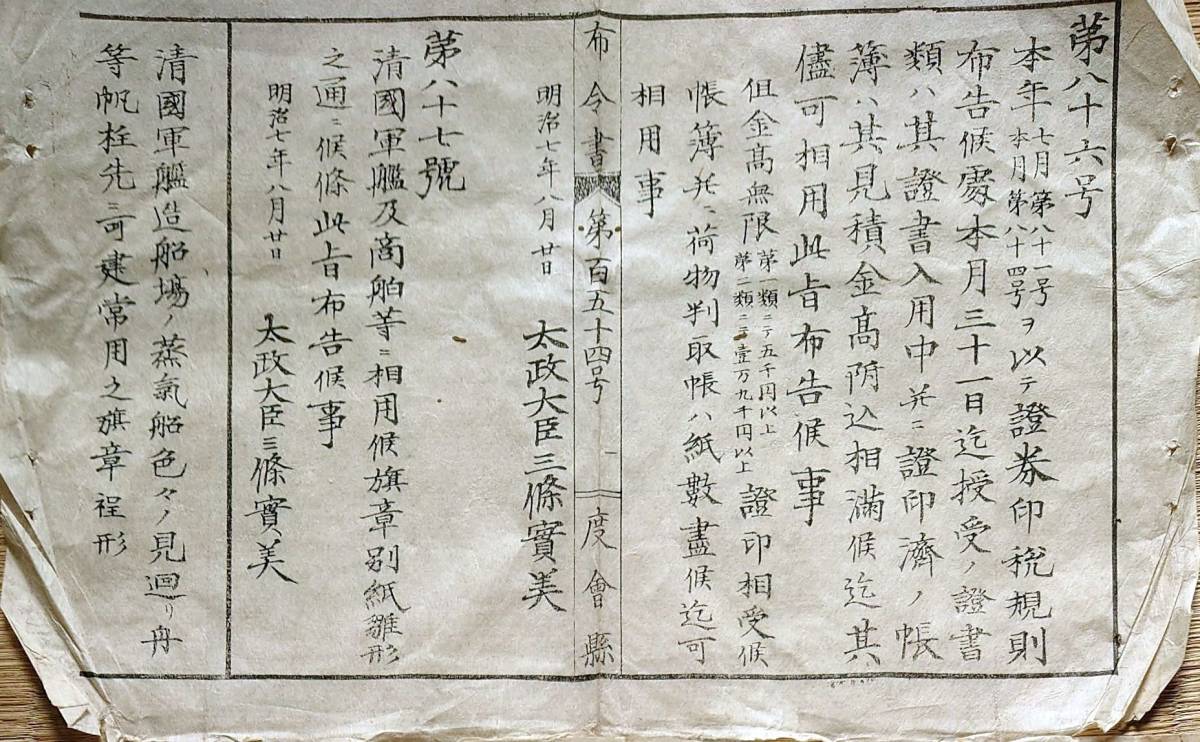 第八十六号
本年七月第八十一号本月第八十四号ヲ以テ證券印税規則
布告候處本月三十一日迄授受ノ證書
類ハ其證書入用中共ニ證印濟ノ帳
簿ハ其見積金高附込相滿候迄其
儘可相用此旨布告候事
但金高無限第一類ニテ五千円以上第二類ニテ壹万九千円以上證印相受候
帳簿共ニ荷物判取帳ハ紙數盡候迄可
相用事
明治七年八月廿日 太政大臣三條實美
布令書 第百五十四号 一 度會縣
第八十七號
清國軍艦及商舶等ニ相用候旗章別紙雛形
之通ニ候條此旨布告候事
明治七年八月廿日 太政大臣三條實美
清國軍艦造船場ノ蒸氣船色々ノ見廻リ舟
等帆柱先ニ可建常用之旗章程形